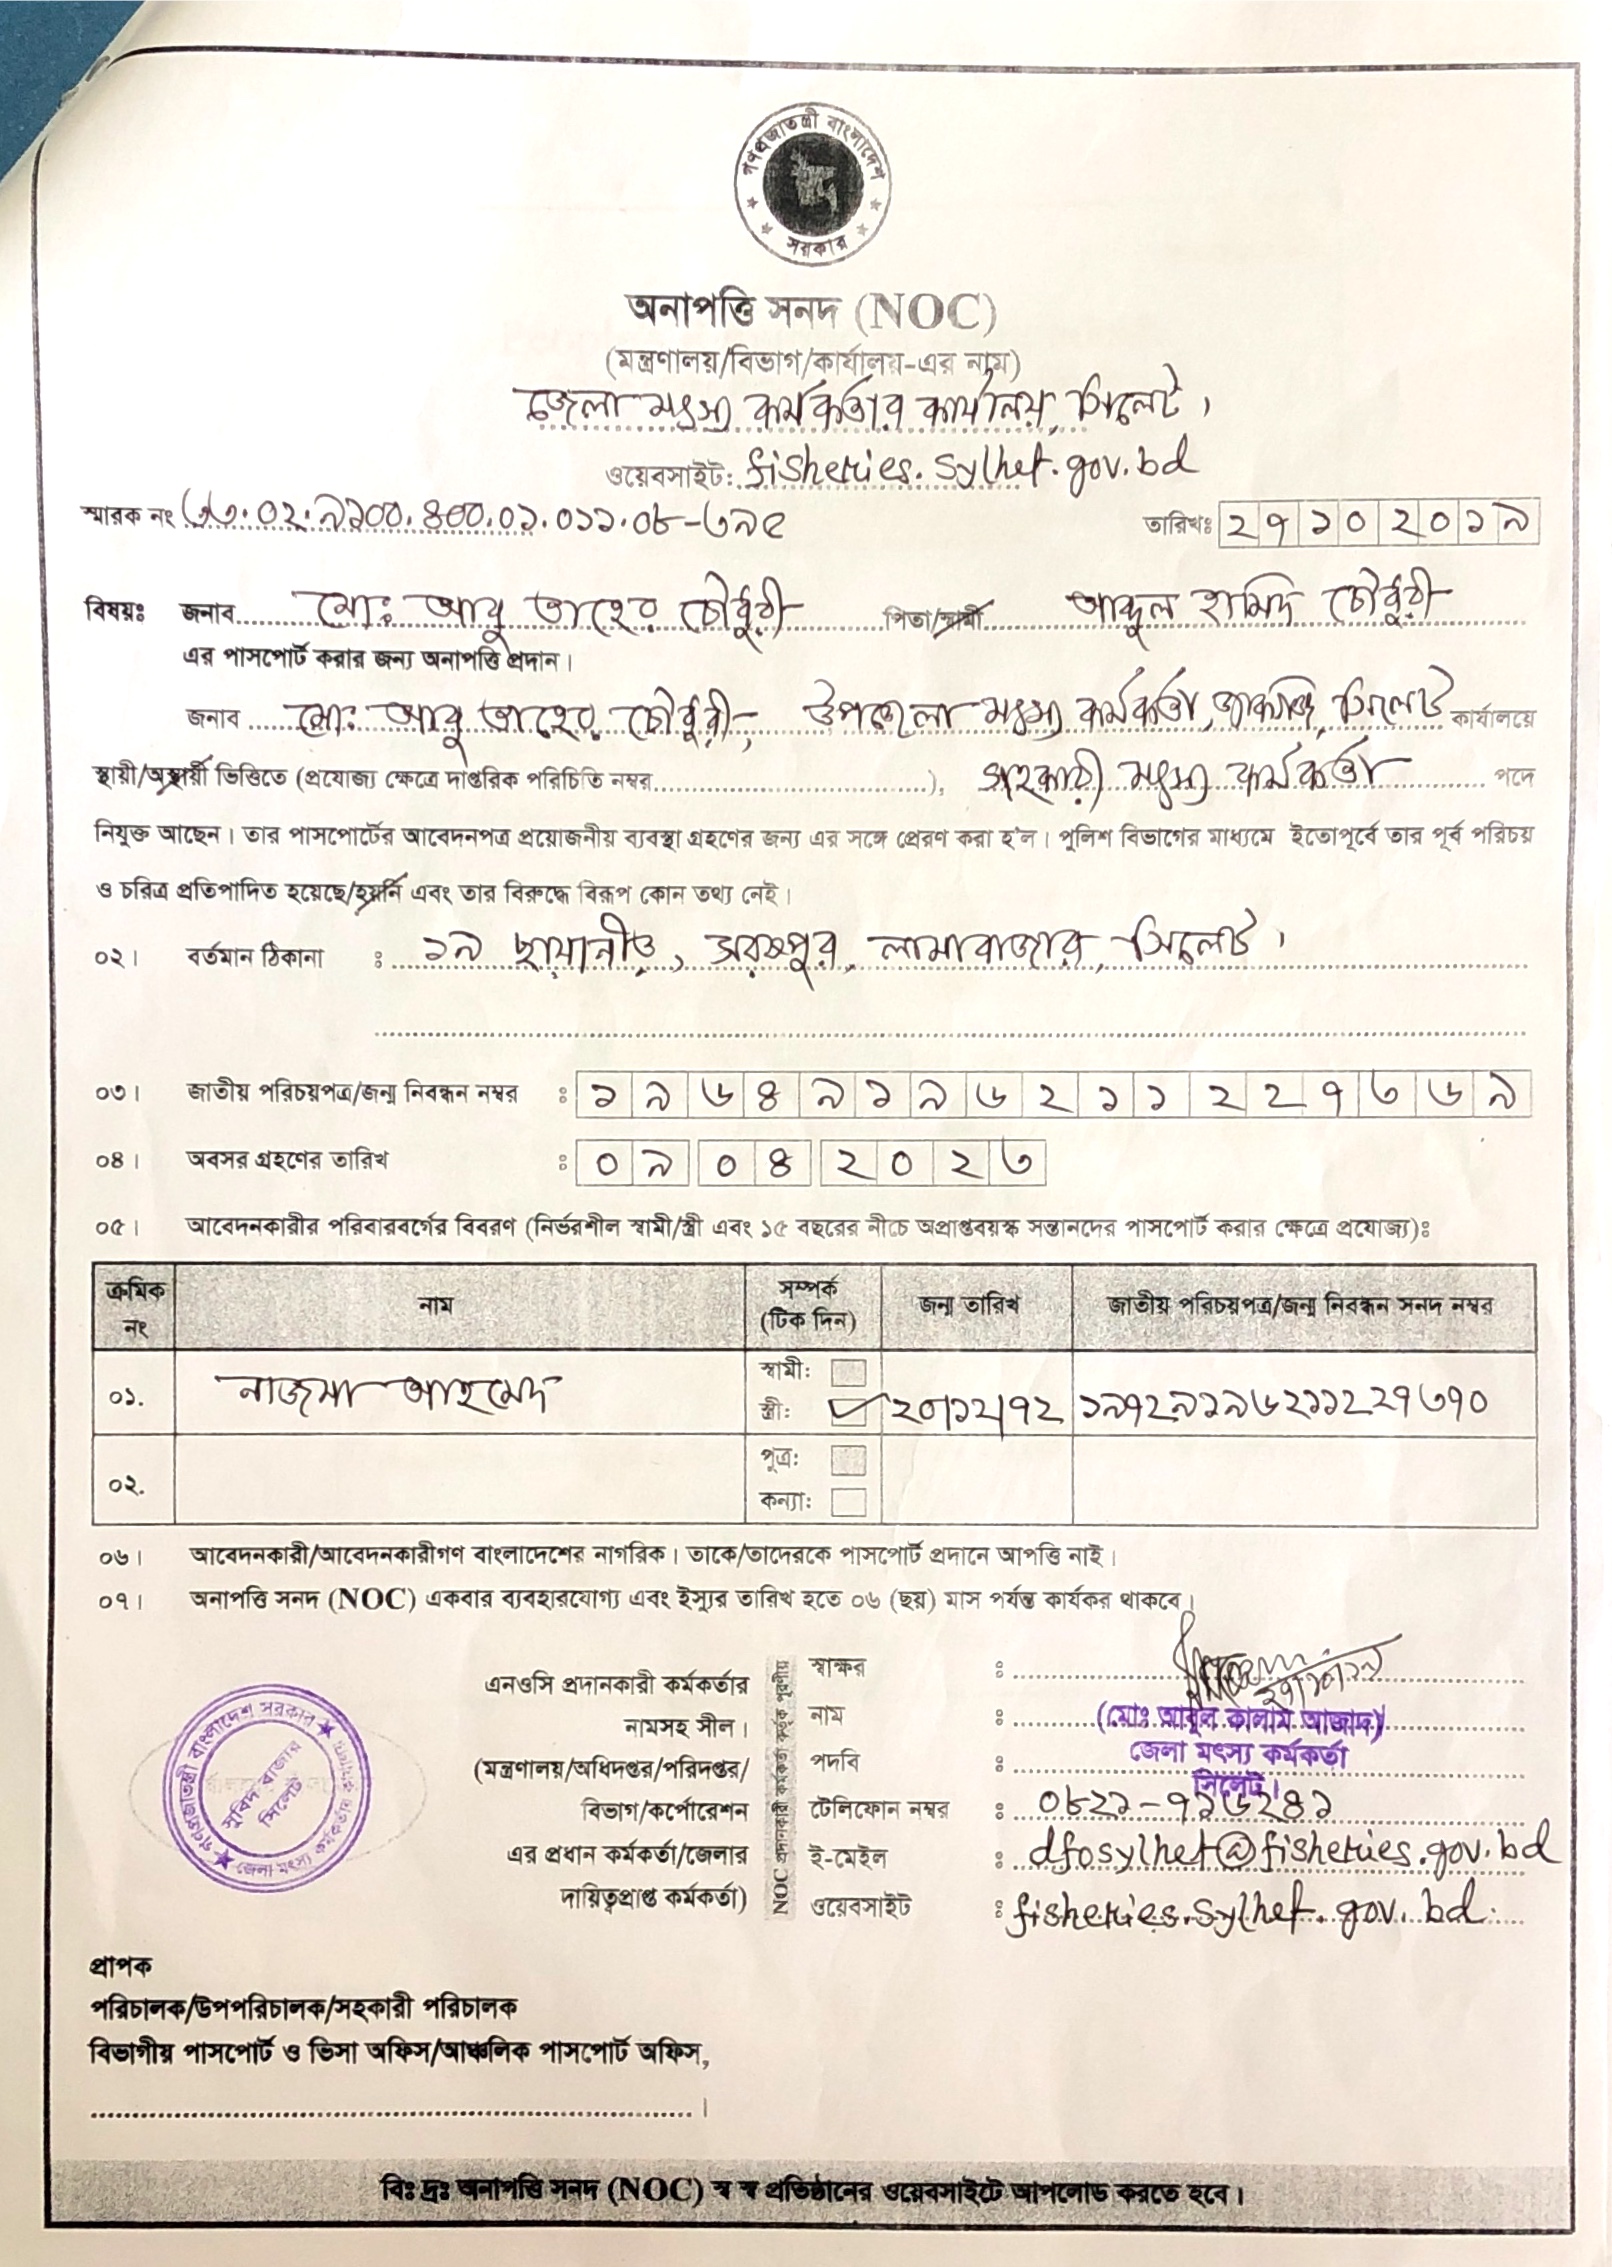 গণপ্রজাতন্ত্রী বাংলাদেশ
সরকার
অনাপত্তি সনদ (NOC)
(মন্ত্রণালয়/বিভাগ/কার্যালয়-এর নাম)
জেলা মৎস্য কর্মকর্তার কার্যালয়, সিলেট।
ওয়েবসাইট: fisheries.sylhet.gov.bd
স্মারক নং ৩৩.০২.৯১০০.৪০০.০১.০১১.০৮-৩৯৫ তারিখঃ ২৭১০২০১৯
বিষয়ঃ জনাব মোঃ আবু তাহের চৌধুরী পিতা/স্বামী আব্দুল হামিদ চৌধুরী
এর পাসপোর্ট করার জন্য অনাপত্তি প্রদান।
জনাব মোঃ আবু তাহের চৌধুরী, উপজেলা মৎস্য কর্মকর্তা, সিলেট কার্যালয়ে
স্থায়ী/অস্থায়ী ভিত্তিতে (প্রযোজ্য ক্ষেত্রে দাপ্তরিক পরিচিতি নম্বর..............................), সহকারী মৎস্য কর্মকর্তা পদে
নিযুক্ত আছেন। তার পাসপোর্টের আবেদনপত্র প্রয়োজনীয় ব্যবস্থা গ্রহণের জন্য এর সঙ্গে প্রেরণ করা হ'ল। পুলিশ বিভাগের মাধ্যমে ইতোপূর্বে তার পূর্ব পরিচয়
ও চরিত্র প্রতিপাদিত হয়েছে/হয়নি এবং তার বিরুদ্ধে বিরূপ কোন তথ্য নেই।
০২। বর্তমান ঠিকানা : ১৯ ছায়ানীড়, লামাবাজার, সিলেট।
০৩। জাতীয় পরিচয়পত্র/জন্ম নিবন্ধন নম্বর : ১৯৬৪৯১৯৬২১১২২৭৩৬৯
০৪। অবসর গ্রহণের তারিখ : ০৯ ০৪ ২০২৩
০৫। আবেদনকারীর পরিবারবর্গের বিবরণ (নির্ভরশীল স্বামী/স্ত্রী এবং ১৫ বছরের নীচে অপ্রাপ্তবয়স্ক সন্তানদের পাসপোর্ট করার ক্ষেত্রে প্রযোজ্য):
ক্রমিক নং নাম সম্পর্ক (টিক দিন) জন্ম তারিখ জাতীয় পরিচয়পত্র/জন্ম নিবন্ধন সনদ নম্বর
০১. নাজমা আহমেদ স্বামী: স্ত্রী: ✓ ২০/১২/৭২ ১৯৭২৯১৯৬২১১২২৭৩৭০
০২. পুত্র: কন্যা:
০৬। আবেদনকারী/আবেদনকারীগণ বাংলাদেশের নাগরিক। তাকে/তাদেরকে পাসপোর্ট প্রদানে আপত্তি নাই।
০৭। অনাপত্তি সনদ (NOC) একবার ব্যবহারযোগ্য এবং ইস্যুর তারিখ হতে ০৬ (ছয়) মাস পর্যন্ত কার্যকর থাকবে।
গণপ্রজাতন্ত্রী বাংলাদেশ সরকার
জেলা মৎস্য কর্মকর্তার কার্যালয়
সুবিদ বাজার
সিলেট
এনওসি প্রদানকারী কর্মকর্তার
নামসহ সীল।
(মন্ত্রণালয়/অধিদপ্তর/পরিদপ্তর/
বিভাগ/কর্পোরেশন
এর প্রধান কর্মকর্তা/জেলার
দায়িত্বপ্রাপ্ত কর্মকর্তা)
NOC প্রদানকারী কর্মকর্তা কর্তৃক পূরণীয়
স্বাক্ষর : ২৭/১০/১৯
নাম : (মোঃ আবুল কালাম আজাদ)
পদবি : জেলা মৎস্য কর্মকর্তা
সিলেট।
টেলিফোন নম্বর : ০৮২১-৭১৬২৪১
ই-মেইল : dfosylhet@fisheries.gov.bd
ওয়েবসাইট : fisheries.sylhet.gov.bd.
প্রাপক
পরিচালক/উপপরিচালক/সহকারী পরিচালক
বিভাগীয় পাসপোর্ট ও ভিসা অফিস/আঞ্চলিক পাসপোর্ট অফিস,
বিঃ দ্রঃ অনাপত্তি সনদ (NOC) স্ব স্ব প্রতিষ্ঠানের ওয়েবসাইটে আপলোড করতে হবে।